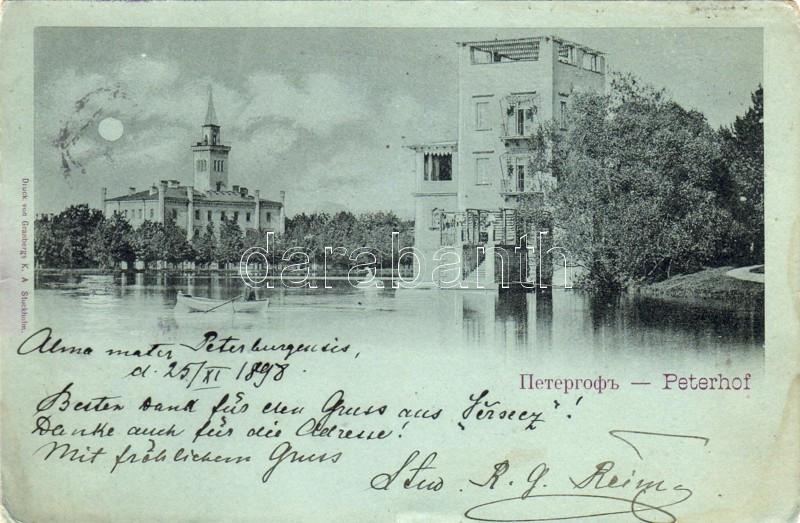 Druck von Granbergs K. A Stockholm.
darabanth
Alma mater Peterburgensis,
d. 25/XI 1898.
Петергофъ — Peterhof
Besten Dank für den Gruss aus „Versecz"!
Danke auch für die Adresse!
Mit fröhlichem Gruss
Stud. R. G. Reim